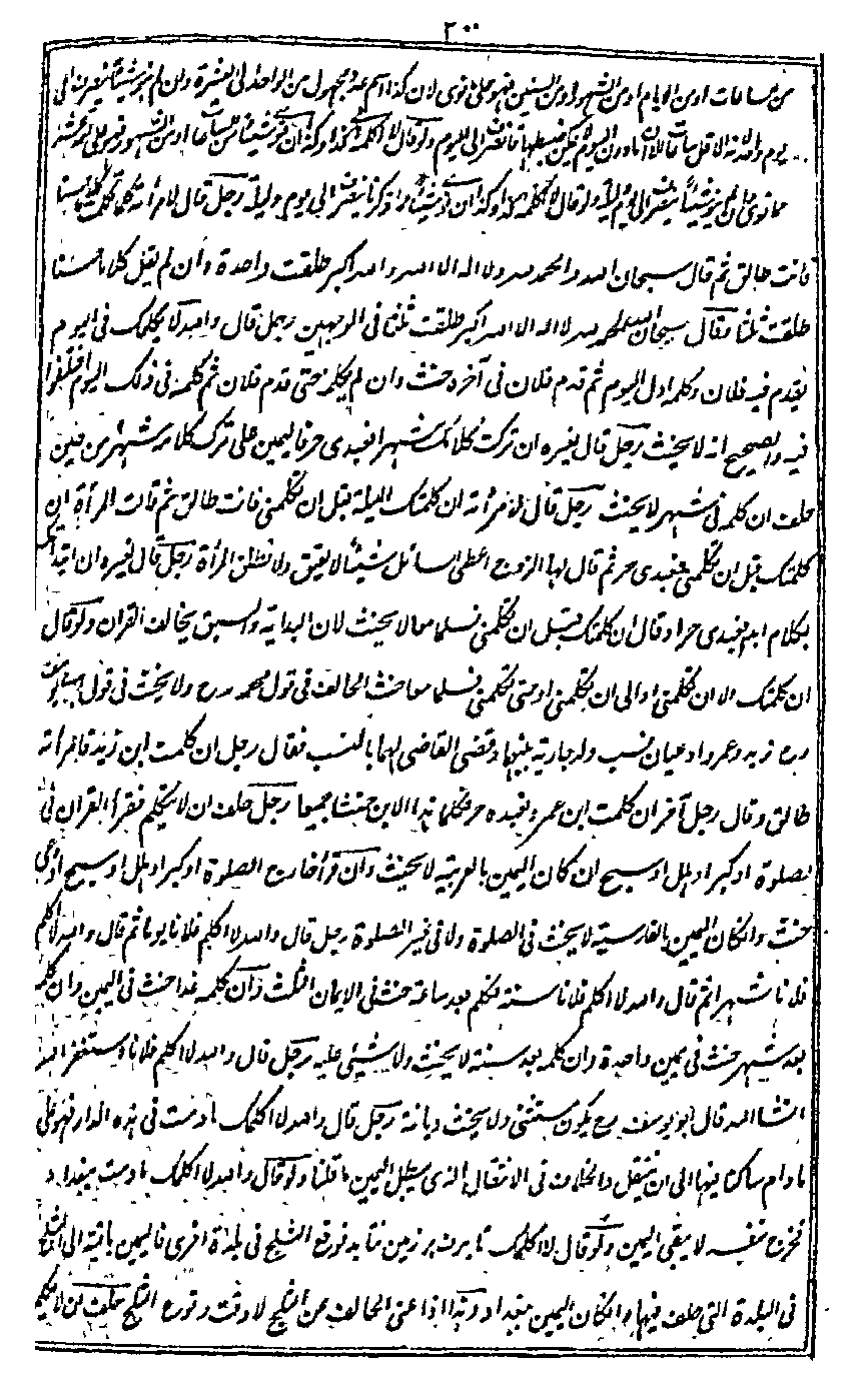 ٢٠٠
من الساعات او من الايام او من الشهور او من السنين فهو على ما نوى لان كذا اسم عدد مجهول من الواحد الى العشرة وان لم ينو شيئا ينصرف الى
يوم واحد لانه الاقل ساعات اليوم ولو قال لا اكلمك كذا وكذا ان نوى شيئا من الساعات او من الشهور فهو على
ما نوى وان لم ينو شيئا ينصرف الى يوم وليلة ولو قال لا اكلمه كذا وكذا ان نوى شيئا واذكرنا ينصرف الى يوم وليلة رجل قال لامرأته كلما تكلمت كلاما حسنا
فانت طالق ثم قال سبحان الله والحمد لله ولا اله الا الله والله اكبر طلقت واحدة وان لم يقل كلاما حسنا
طلقت ثلثا ولو قال سبحان الله الحمد لله لا اله الا الله الله اكبر طلقت ثلثا فى الوجهين رجل قال والله لا يكلمك فى اليوم
يقدم فيه فلان وكلمه اول اليوم ثم قدم فلان فى آخره حنث وان لم يكلمه حتى قدم فلان ثم كلمه فى ذلك اليوم اختلفوا
فيه والصحيح انه لا يحنث رجل قال لغيره ان تركت كلامك شهرا فعبدى حر فاليمين على ترك كلامه شهرا من حين
حلف ان كلمه فى شهر لا يحنث رجل قال لامرأته ان كلمتك الليلة قبل ان تكلمنى فانت طالق ثم قالت المرأة ان
كلمتك قبل ان تكلمنى فعبدى حر ثم قال لها الزوج اعطى السائل شيئا لا يعتق ولا تطلق المرأة رجل قال لغيره ان ابتدأتك
بكلام ابدا فعبدى حر او قال ان كلمتك قبل ان تكلمنى فسلما معا لا يحنث لان البداية والسبق يخالف القران ولو قال
ان كلمتك الا ان تكلمنى او الى ان تكلمنى او حتى تكلمنى فسلما معا حنث الحالف فى قول محمد رح ولا يحنث فى قول ابى يوسف
رح زيد وعمرو ادعيا نسب ولد جارية بينهما وقضى القاضى لهما بالنسب فقال رجل ان كلمت ابن زيد فامرأته
طالق وقال رجل آخر ان كلمت ابن عمرو فعبده حر فكلما هذا الابن حنثا جميعا رجل حلف ان لا يتكلم فقرأ القران فى
الصلوة او كبر او هلل او سبح ان كان اليمين بالعربية لا يحنث وان قرأ خارج الصلوة او كبر او هلل او سبح او دعى
حنث وان كان اليمين بالفارسية لا يحنث فى الصلوة ولا فى غير الصلوة رجل قال والله لا اكلم فلانا يوما ثم قال والله لا اكلم
فلانا شهرا ثم قال والله لا اكلم فلانا سنة فكلم بعد ساعة حنث فى الايمان الثلث وان كلمه غدا حنث فى اليمين وان كلمه
بعد شهر حنث فى يمين واحدة وان كلمه بعد سنة لا يحنث ولا شيئ عليه رجل قال والله لا اكلم فلانا واستغفر الله
انشاء الله قال ابو يوسف رح يكون مستثنى ولا يحنث ديانة رجل قال والله لا اكلمك ما دمت فى هذه الدار فهو على
ما دام ساكنا فيها الى ان ينتقل والخلاف فى الانتقال الذى يبطل اليمين ما قلنا ولو قال والله لا اكلمك ما دمت ببغداد
فخرج بنفسه لا يبقى اليمين ولو قال لا اكلمك تا برف بر زمين نيايد فوقع الثلج فى بلدة اخرى فاليمين باقية الى الثلج
فى البلدة التى حلف فيها وان كان اليمين ببغداد وهذا اذا عنى الحالف عن الثلج لا وقت وقوع الثلج حلف ان لا يكلم